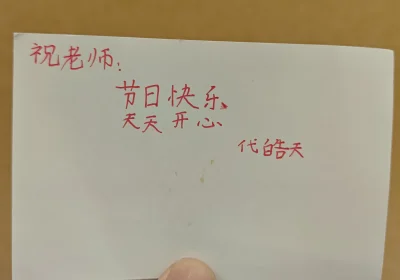 祝老师：
节日快乐、
天天开心
代皓天